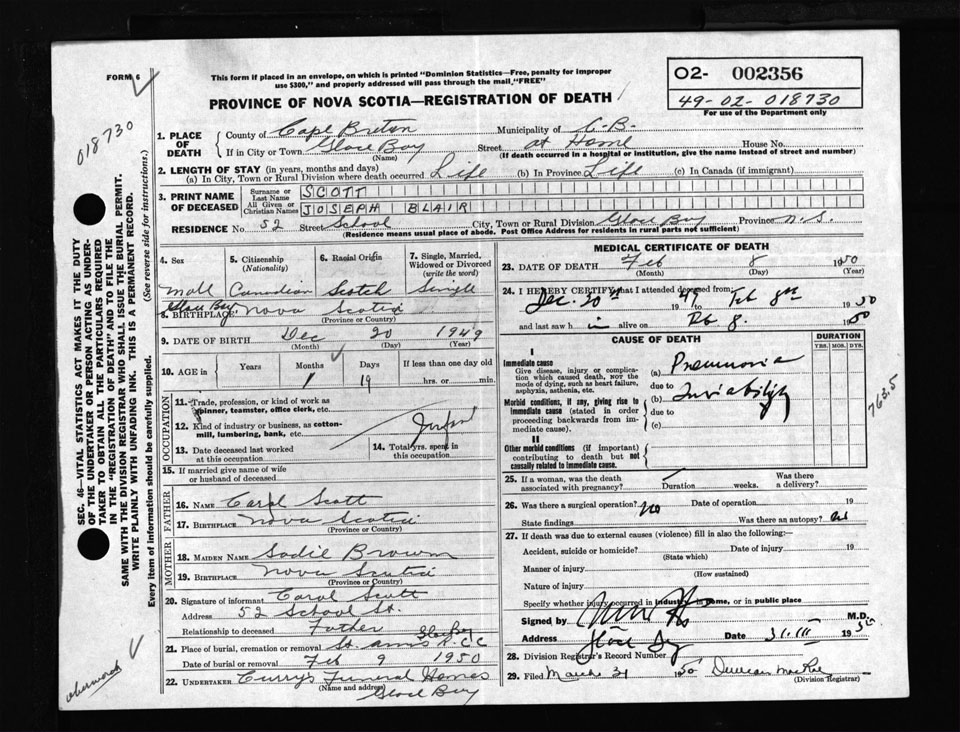 FORM 6
This form if placed in an envelope, on which is printed "Dominion Statistics—Free, penalty for improper
use $300," and properly addressed will pass through the mail, "FREE"
PROVINCE OF NOVA SCOTIA—REGISTRATION OF DEATH
O2- 002356
49-02-018730
For use of the Department only
018730
1. PLACE OF DEATH
County of Cape Breton Municipality of C.B.
If in City or Town Glace Bay Street at Home House No.
(Name) (If death occurred in a hospital or institution, give the name instead of street and number)
2. LENGTH OF STAY (in years, months and days)
(a) In City, Town or Rural Division where death occurred Life (b) In Province Life (c) In Canada (if immigrant)
3. PRINT NAME OF DECEASED
Surname or Last Name SCOTT
All Given or Christian Names JOSEPH BLAIR
RESIDENCE No. 52 Street School City, Town or Rural Division Glace Bay Province N.S.
(Residence means usual place of abode. Post Office Address for residents in rural parts not sufficient)
4. Sex
5. Citizenship (Nationality)
6. Racial Origin
7. Single, Married, Widowed or Divorced (write the word)
Male Canadian Scotch Single
Glace Bay
8. BIRTHPLACE Nova Scotia
(Province or Country)
9. DATE OF BIRTH Dec 20 1949
(Month) (Day) (Year)
10. AGE in Years Months 1 Days 19 If less than one day old hrs. or min.
OCCUPATION
11. Trade, profession, or kind of work as spinner, teamster, office clerk, etc.
12. Kind of industry or business, as cotton-mill, lumbering, bank, etc.
Infant
13. Date deceased last worked at this occupation
14. Total yrs. spent in this occupation
15. If married give name of wife or husband of deceased
FATHER
16. NAME Carol Scott
17. BIRTHPLACE Nova Scotia
(Province or Country)
MOTHER
18. MAIDEN NAME Sadie Brown
19. BIRTHPLACE Nova Scotia
(Province or Country)
20. Signature of informant Carol Scott
Address 52 School St.
Relationship to deceased Father
21. Place of burial, cremation or removal St. Anns R.C.C Glace Bay
Date of burial or removal Feb 9 1950
22. UNDERTAKER Curry's Funeral Homes
(Name and address) Glace Bay
MEDICAL CERTIFICATE OF DEATH
23. DATE OF DEATH Feb 8 1950
(Month) (Day) (Year)
24. I HEREBY CERTIFY that I attended deceased from:
Dec. 20th 49 Feb 8th 1950
and last saw h im alive on Feb 8. 1950
CAUSE OF DEATH
DURATION
YRS. MOS. DYS.
I
Immediate cause
Give disease, injury or complication which caused death, NOT the mode of dying, such as heart failure, asphyxia, asthenia, etc.
(a) Pneumonia
due to
Morbid conditions, if any, giving rise to immediate cause (stated in order proceeding backwards from immediate cause).
(b) Inviability
due to
(c)
II
Other morbid conditions (if important) contributing to death but not causally related to immediate cause.
763.5
25. If a woman, was the death associated with pregnancy? Duration weeks. Was there a delivery?
26. Was there a surgical operation? No Date of operation 19
State findings Was there an autopsy?
27. If death was due to external causes (violence) fill in also the following:—
Accident, suicide or homicide? Date of injury 19
(State which)
Manner of injury
(How sustained)
Nature of injury
Specify whether injury occurred in industry, in home, or in public place
Signed by M.D.
Address Glace Bay Date 31. III 1950
28. Division Registrar's Record Number
29. Filed March 31 1950 Duncan MacRae
(Division Registrar)
SEC. 46—VITAL STATISTICS ACT MAKES IT THE DUTY
OF THE UNDERTAKER OR PERSON ACTING AS UNDERTAKER
TO OBTAIN ALL THE PARTICULARS REQUIRED
IN THE "REGISTRATION OF DEATH" AND TO FILE THE
SAME WITH THE DIVISION REGISTRAR WHO SHALL ISSUE THE BURIAL PERMIT.
WRITE PLAINLY WITH UNFADING INK. THIS IS A PERMANENT RECORD.
Every item of information should be carefully supplied. (See reverse side for instructions.)